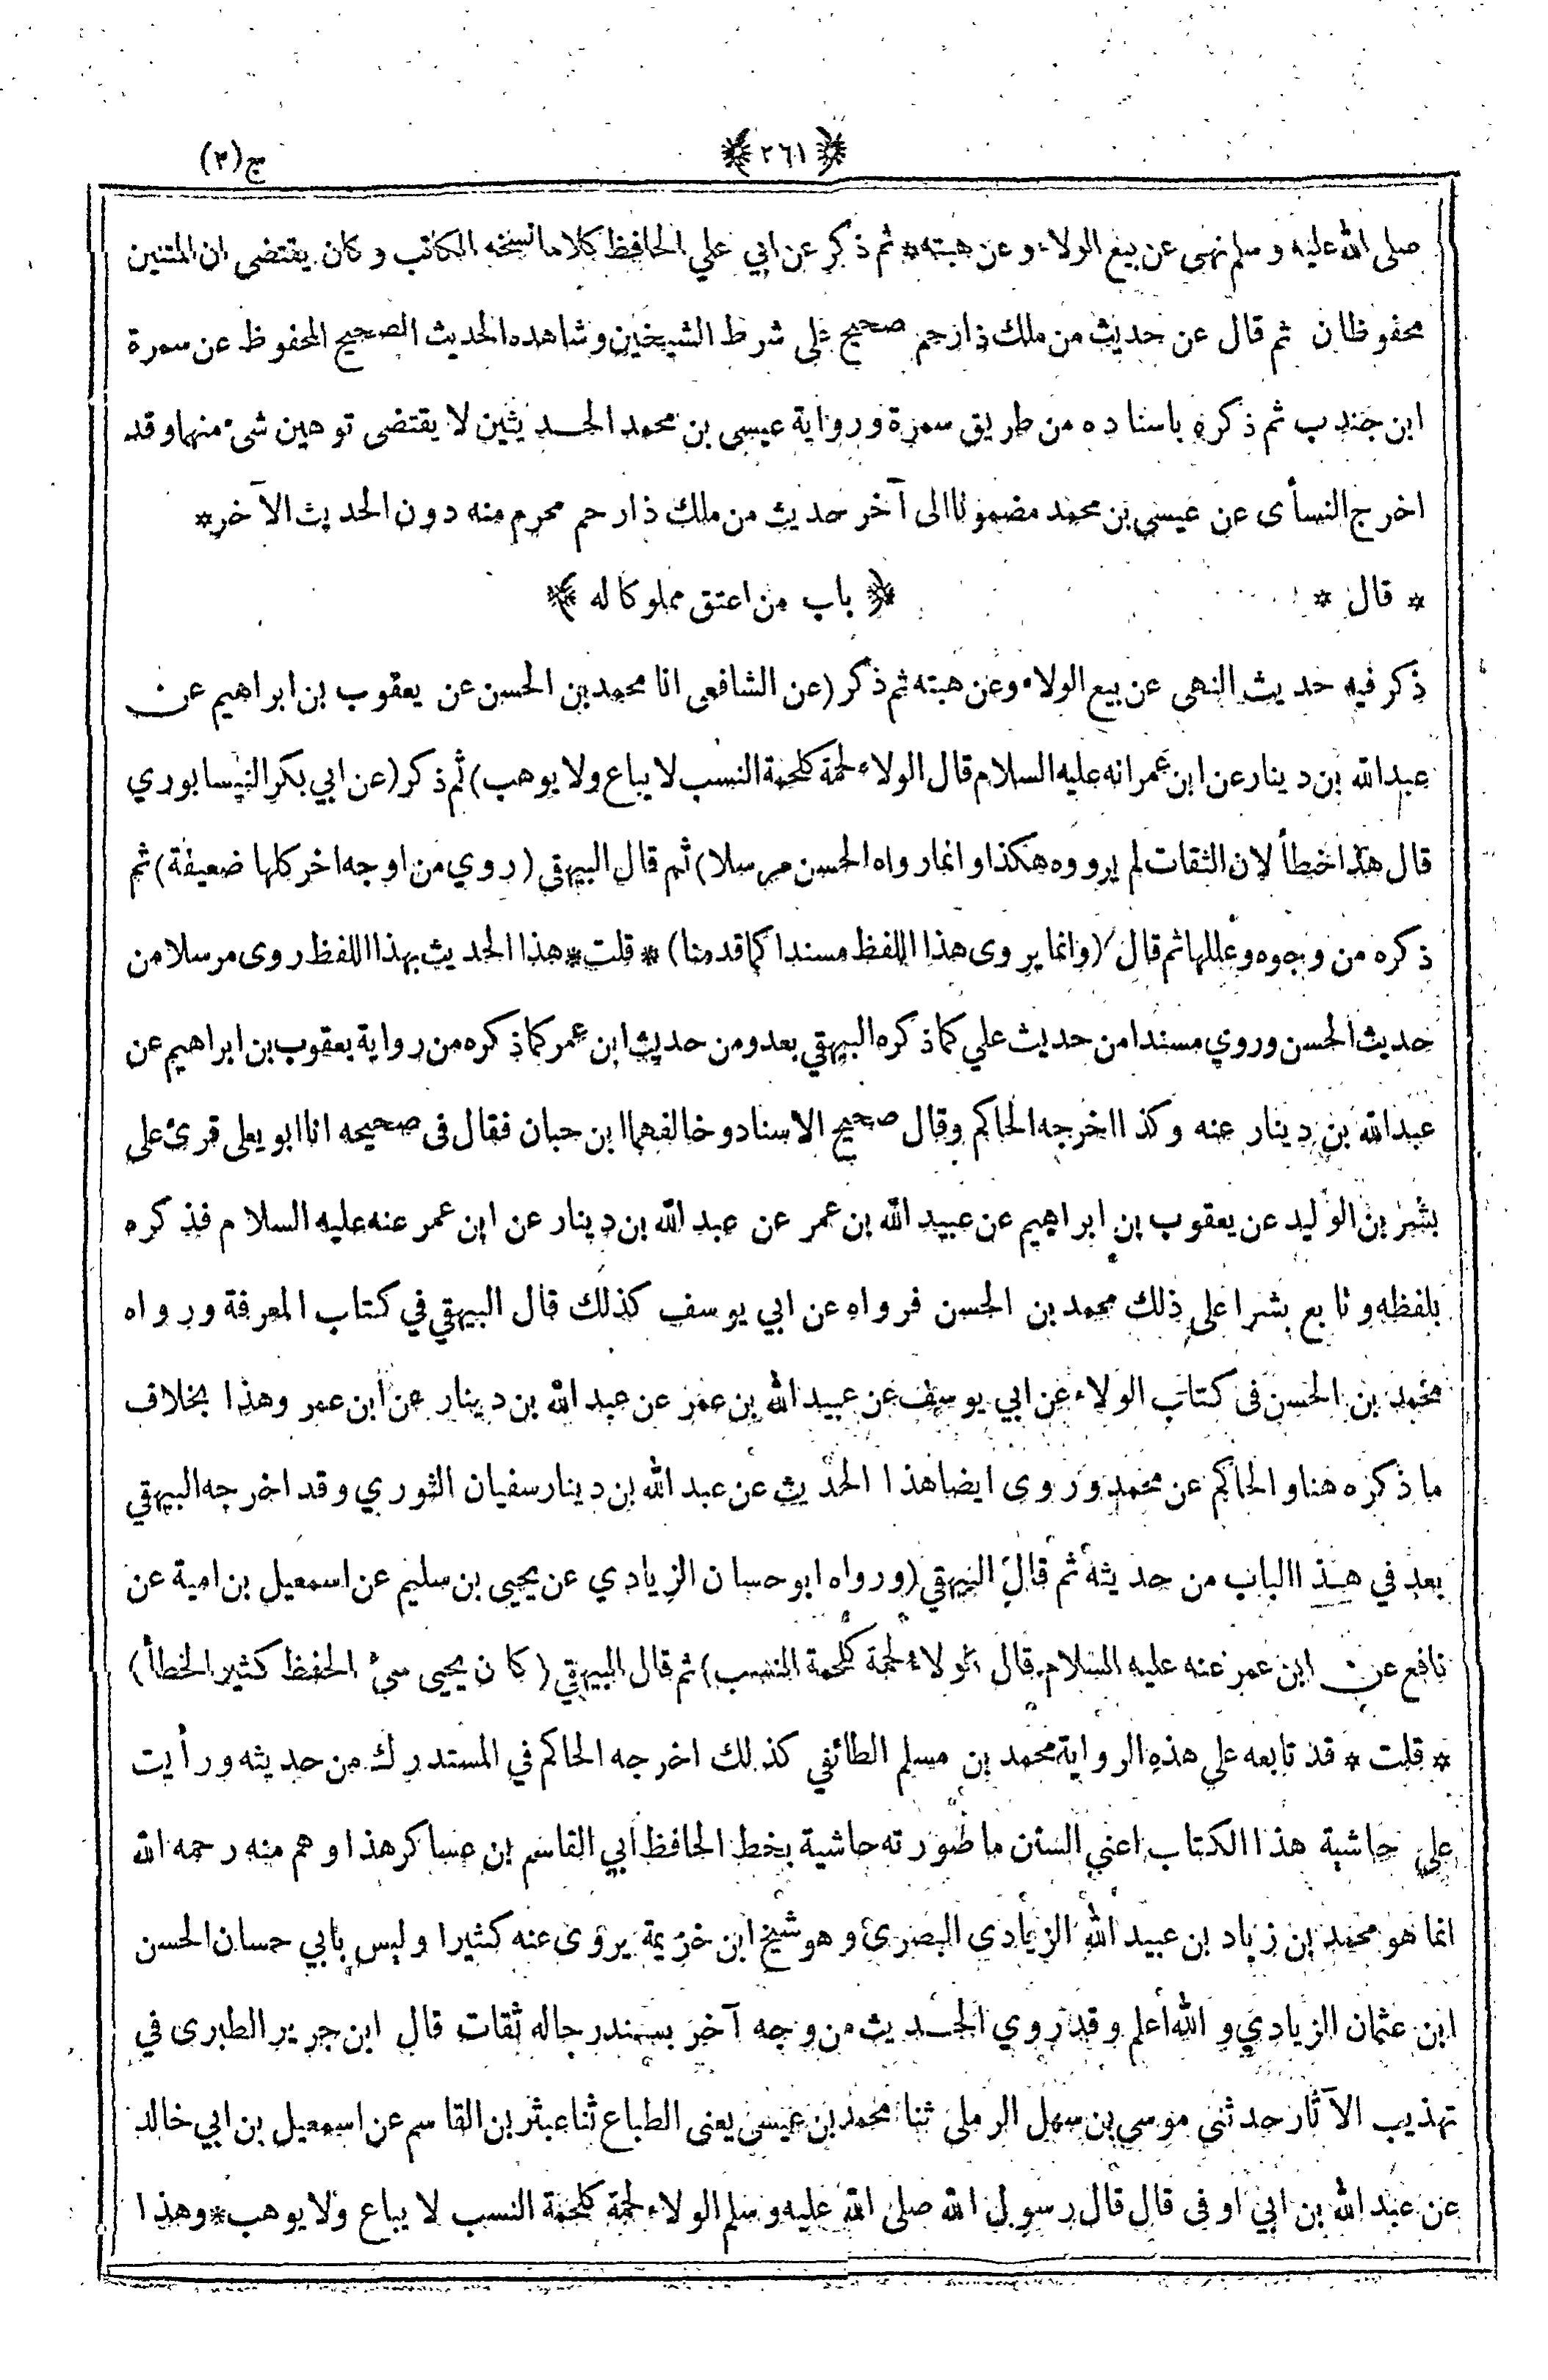 ﴿ ٢٦١ ﴾ ج (٢)
صلى الله عليه وسلم نهى عن بيع الولاء وعن هبته * ثم ذكر عن ابي علي الحافظ كلاما نسخه الكاتب وكان يقتضى ان المتنين
محفوظان ثم قال عن حديث من ملك ذارحم صحيح على شرط الشيخين وشاهده الحديث الصحيح المحفوظ عن سمرة
ابن جندب ثم ذكره باسناده من طريق سمرة ورواية عيسى بن محمد الحديثين لا يقتضى توهين شىء منها وقد
اخرج النسأى عن عيسى بن محمد مضمونا الى آخر حديث من ملك ذارحم محرم منه دون الحديث الآخر *
* قال * ﴿ باب من اعتق مملوكا له ﴾
ذكر فيه حديث النهى عن بيع الولاء وعن هبته ثم ذكر (عن الشافعى انا محمد بن الحسن عن يعقوب بن ابراهيم عن
عبدالله بن دينار عن ابن عمر انه عليه السلام قال الولاء لحمة كلحمة النسب لا يباع ولا يوهب) ثم ذكر (عن ابي بكر النيسابوري
قال هذا خطأ لان الثقات لم يرووه هكذا وانما رواه الحسن مرسلا) ثم قال البيهقي (روي من اوجه اخر كلها ضعيفة) ثم
ذكره من وجوه وعللها ثم قال (وانما يروى هذا اللفظ مسندا كما قدمنا) * قلت * هذا الحديث بهذا اللفظ روى مرسلا من
حديث الحسن وروي مسندا من حديث علي كما ذكره البيهقي بعد ومن حديث ابن عمر كما ذكره من رواية يعقوب بن ابراهيم عن
عبدالله بن دينار عنه وكذا اخرجه الحاكم وقال صحيح الاسناد وخالفهما ابن حبان فقال فى صحيحه انا ابو يعلى قرئ على
بشر بن الوليد عن يعقوب بن ابراهيم عن عبيد الله بن عمر عن عبد الله بن دينار عن ابن عمر عنه عليه السلام فذكره
بلفظه وتابع بشرا على ذلك محمد بن الحسن فرواه عن ابي يوسف كذلك قال البيهقي في كتاب المعرفة ورواه
محمد بن الحسن فى كتاب الولاء عن ابي يوسف عن عبيد الله بن عمر عن عبد الله بن دينار عن ابن عمر وهذا بخلاف
ما ذكره هنا والحاكم عن محمد وروى ايضا هذا الحديث عن عبد الله بن دينار سفيان الثوري وقد اخرجه البيهقي
بعد في هذا الباب من حديثه ثم قال البيهقي (ورواه ابو حسان الزيادي عن يحيى بن سليم عن اسمعيل بن امية عن
نافع عن ابن عمر عنه عليه السلام قال الولاء لحمة كلحمة النسب) ثم قال البيهقي (كان يحيى سىء الحفظ كثير الخطأ)
* قلت * قد تابعه على هذه الرواية محمد بن مسلم الطائفي كذلك اخرجه الحاكم في المستدرك من حديثه ورأيت
على حاشية هذا الكتاب اعني السنن ما صورته حاشية بخط الحافظ ابي القاسم بن عساكر هذا وهم منه رحمه الله
انما هو محمد بن زياد بن عبيد الله الزيادى البصرى وهو شيخ ابن خزيمة يروى عنه كثيرا وليس بابي حسان الحسن
ابن عثمان الزيادي والله اعلم وقد روي الحديث من وجه آخر بسند رجاله ثقات قال ابن جرير الطبرى في
تهذيب الآثار حدثنى موسى بن سهل الرملى ثنا محمد بن عيسى يعنى الطباع ثنا عبثر بن القاسم عن اسمعيل بن ابي خالد
عن عبد الله بن ابي اوفى قال قال رسول الله صلى الله عليه وسلم الولاء لحمة كلحمة النسب لا يباع ولا يوهب * وهذا